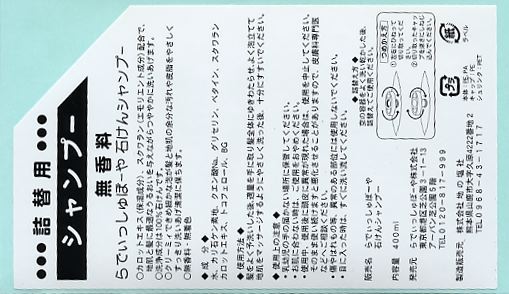 ●●● 詰替用 ●●●
シャンプー
無香料
らでぃっしゅぼーや 石けんシャンプー
○カロットエキス(保湿成分)、スクワラン(エモリエント成分)配合で、
地肌と髪に最適なうるおいを与えながらつややかに洗いあげます。
○洗浄成分が100%石けんです。
○クリーミィできめ細かな泡が髪と地肌の余分な汚れや皮脂をやさしく
すっきり洗いあげ清潔に保ちます。
○無香料・無着色
◆ 成 分 ◆
水、カリ石ケン素地、クエン酸Na、グリセリン、ベタイン、スクワラン
カロットエキス、トコフェロール、BG
◆ 使用方法 ◆
髪をよく予洗いした後、適量を手に取り髪全体にゆきわたらせ、よく泡立てて
地肌をマッサージするようにやさしく洗った後、十分にすすいでください。
◆ 使用上の注意 ◆
・乳幼児の手の届かない場所に保管してください。
・お肌に合わない時は、ご使用をおやめください。
・使用中、使用後に頭皮に異常が現れた場合は、使用を中止してください。
そのまま使い続けますと悪化することがありますので、皮膚科専門医
などへご相談ください。
・傷やはれもの等、異常のある部位には使用しないでください。
・目に入った時は、すぐに洗い流してください。
◆ 詰替え方 ◆
空の容器をよく洗い乾かした後、
詰替えてご使用ください。
つめかえ方
販売名 らでぃっしゅぼーや
石けんシャンプー
内容量 400ml
発売元 らでぃっしゅぼーや株式会社
東京都港区芝公園3-1-13
アーバン芝公園5階
TEL0120-817-999
製造販売元 株式会社 地の塩社
熊本県山鹿市大字久原4222番地2
TEL0968-43-1717
プラ
本体:PE,PA
キャップ:PE
シュリンク:PET
紙
ラベル